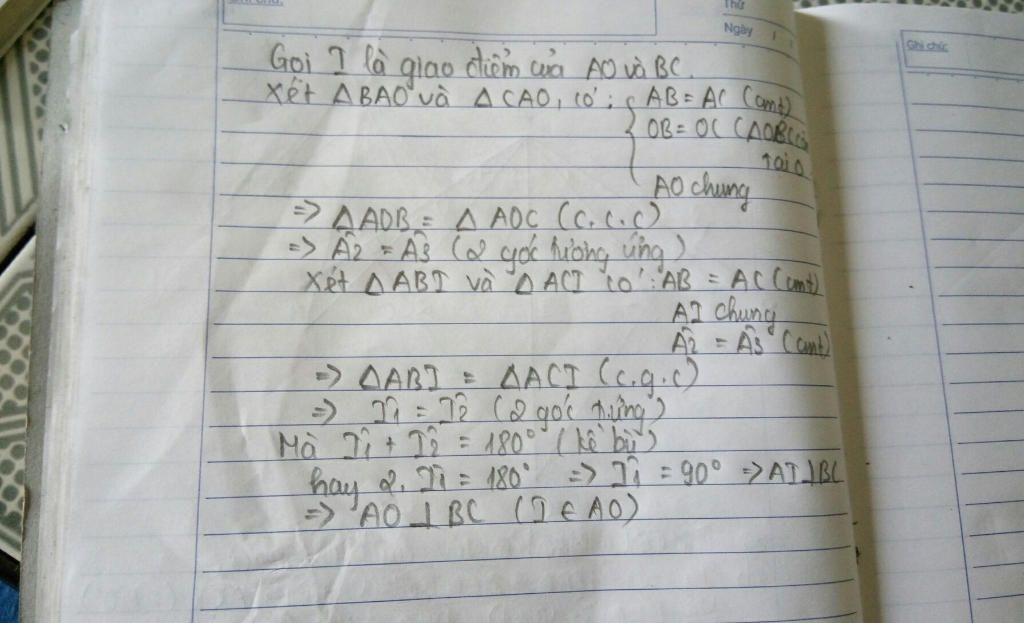 Ghi chú:
Thứ
Ngày
Ghi chú
Gọi I là giao điểm của AO và BC.
Xét ΔBAO và ΔCAO, có: { AB = AC (cmt)
OB = OC (ΔOBC cân
tại O
AO chung
=> ΔAOB = ΔAOC (c.c.c)
=> Â2 = Â3 (2 góc tương ứng)
Xét ΔABI và ΔACI có: AB = AC (cmt)
AI chung
Â2 = Â3 (cmt)
=> ΔABI = ΔACI (c.g.c)
=> Î1 = Î2 (2 góc t.ứng)
Mà Î1 + Î2 = 180° (kề bù)
hay 2. Î1 = 180° => Î1 = 90° => AI⊥BC
=> AO ⊥ BC (I ∈ AO)